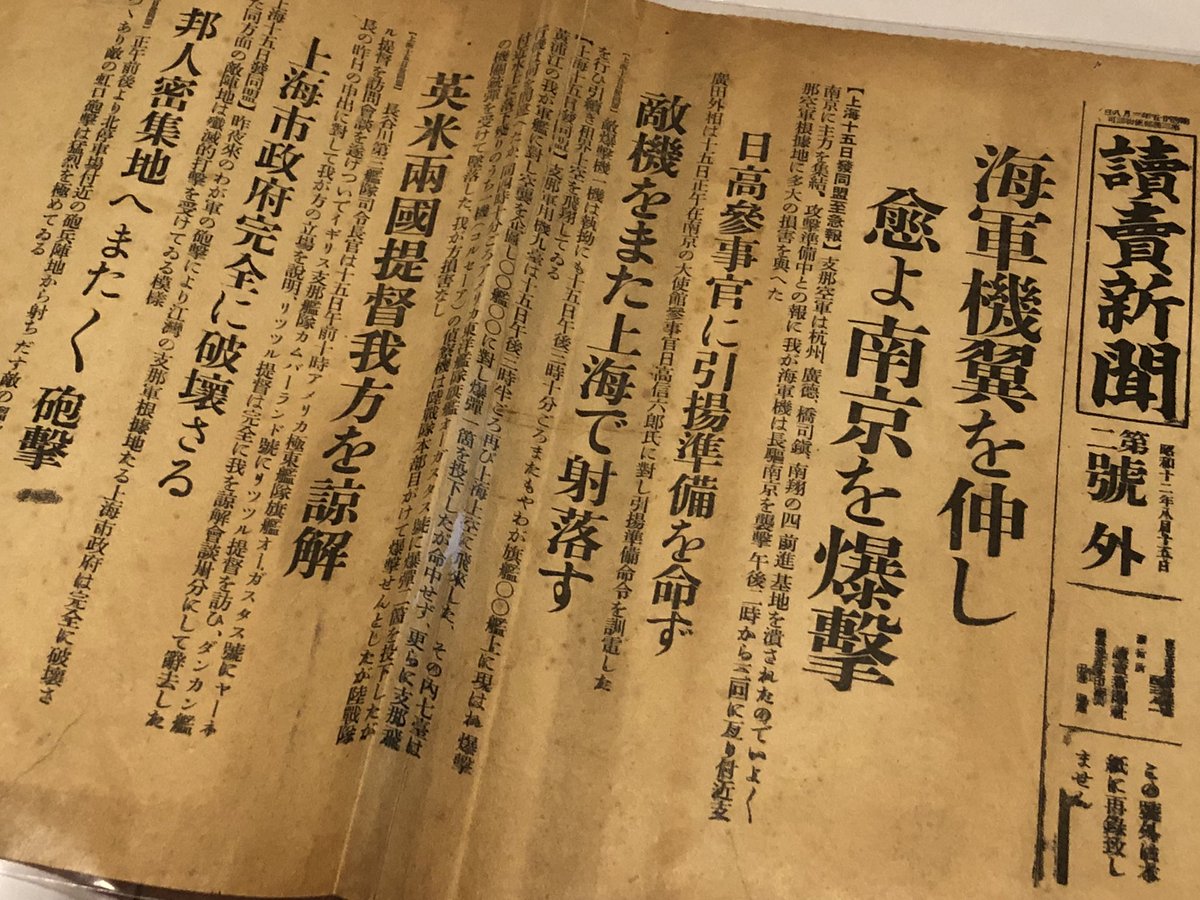 讀賣新聞
第二號外
昭和十二年八月十五日
この號外は本
紙に再錄致し
ません
海軍機翼を伸し
愈よ南京を爆擊
【上海十五日發同盟至急報】支那空軍は杭州、廣德、橋司鎭、南翔の四 前進 基地を潰されたのでいよ〱
南京に主力を集結、攻擊準備中との報に我が海軍機は長驅南京を襲擊 午後二時から三回に亙り付近支
那空軍根據地に多大の損害を與へた
日高參事官に引揚準備を命ず
廣田外相は十五日正午在南京の大使館參事官日高信六郎氏に對し引揚準備命令を訓電した
敵機をまた上海で射落す
敵爆擊機一機は執拗にも十五日午後三時十分ごろまたもやわが旗艦〇〇艦上に現はれ 爆擊
を行ひ引續き租界上空を飛翔してゐる
【上海十五日發同盟】支那軍用機九臺は十五日午後三時半ごろ再び上海上空に飛來した、その內七臺は
黃浦江の我が軍艦に對し空襲を企圖し〇〇艦〇〇に對し爆彈一箇を投下したが命中せず、更らに支那飛
の機關銃彈を受けて墜落した、我が方損害なし
英米兩國提督我方を諒解
長谷川第三艦隊司令長官は十五日午前十時アメリカ極東艦隊旗艦オーガスタス號にヤーネ
ル提督を訪問會談を遂げついでイギリス支那艦隊カムバーランド號にリツツル提督を訪ひ、ダンカン艦
長の昨日の申出に對して我が方の立場を說明、リツツル提督は完全に我を諒解會談卅分にして辭去した
上海市政府完全に破壞さる
【上海十五日發同盟】昨夜來のわが軍の砲擊により江灣の支那軍根據地たる上海市政府は完全に破壞さ
た同方面の敵陣地は殲滅的打擊を受けてゐる模樣
邦人密集地へまたく砲擊
正午前後より北停車場付近の砲兵陣地から射ちだす敵の
くあり敵の虹口砲擊は猛烈を極めてゐる